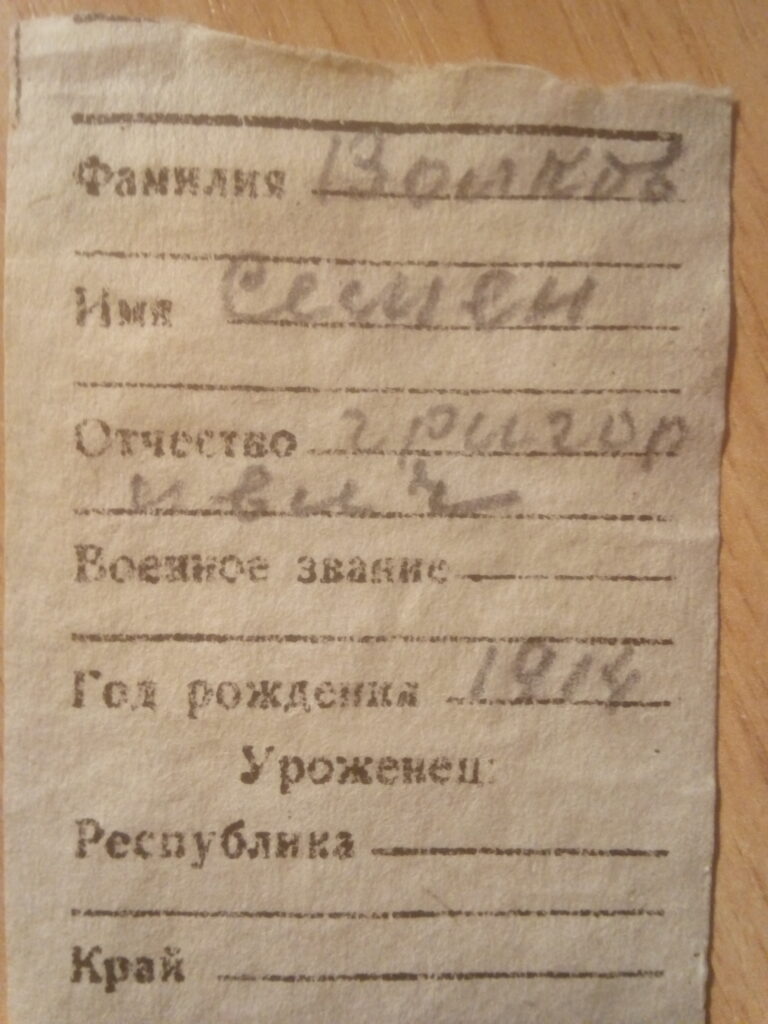 Фамилия Волков
Имя Семен
Отчество григор
иевич
Военное звание
Год рождения 1914
Уроженец:
Республика
Край